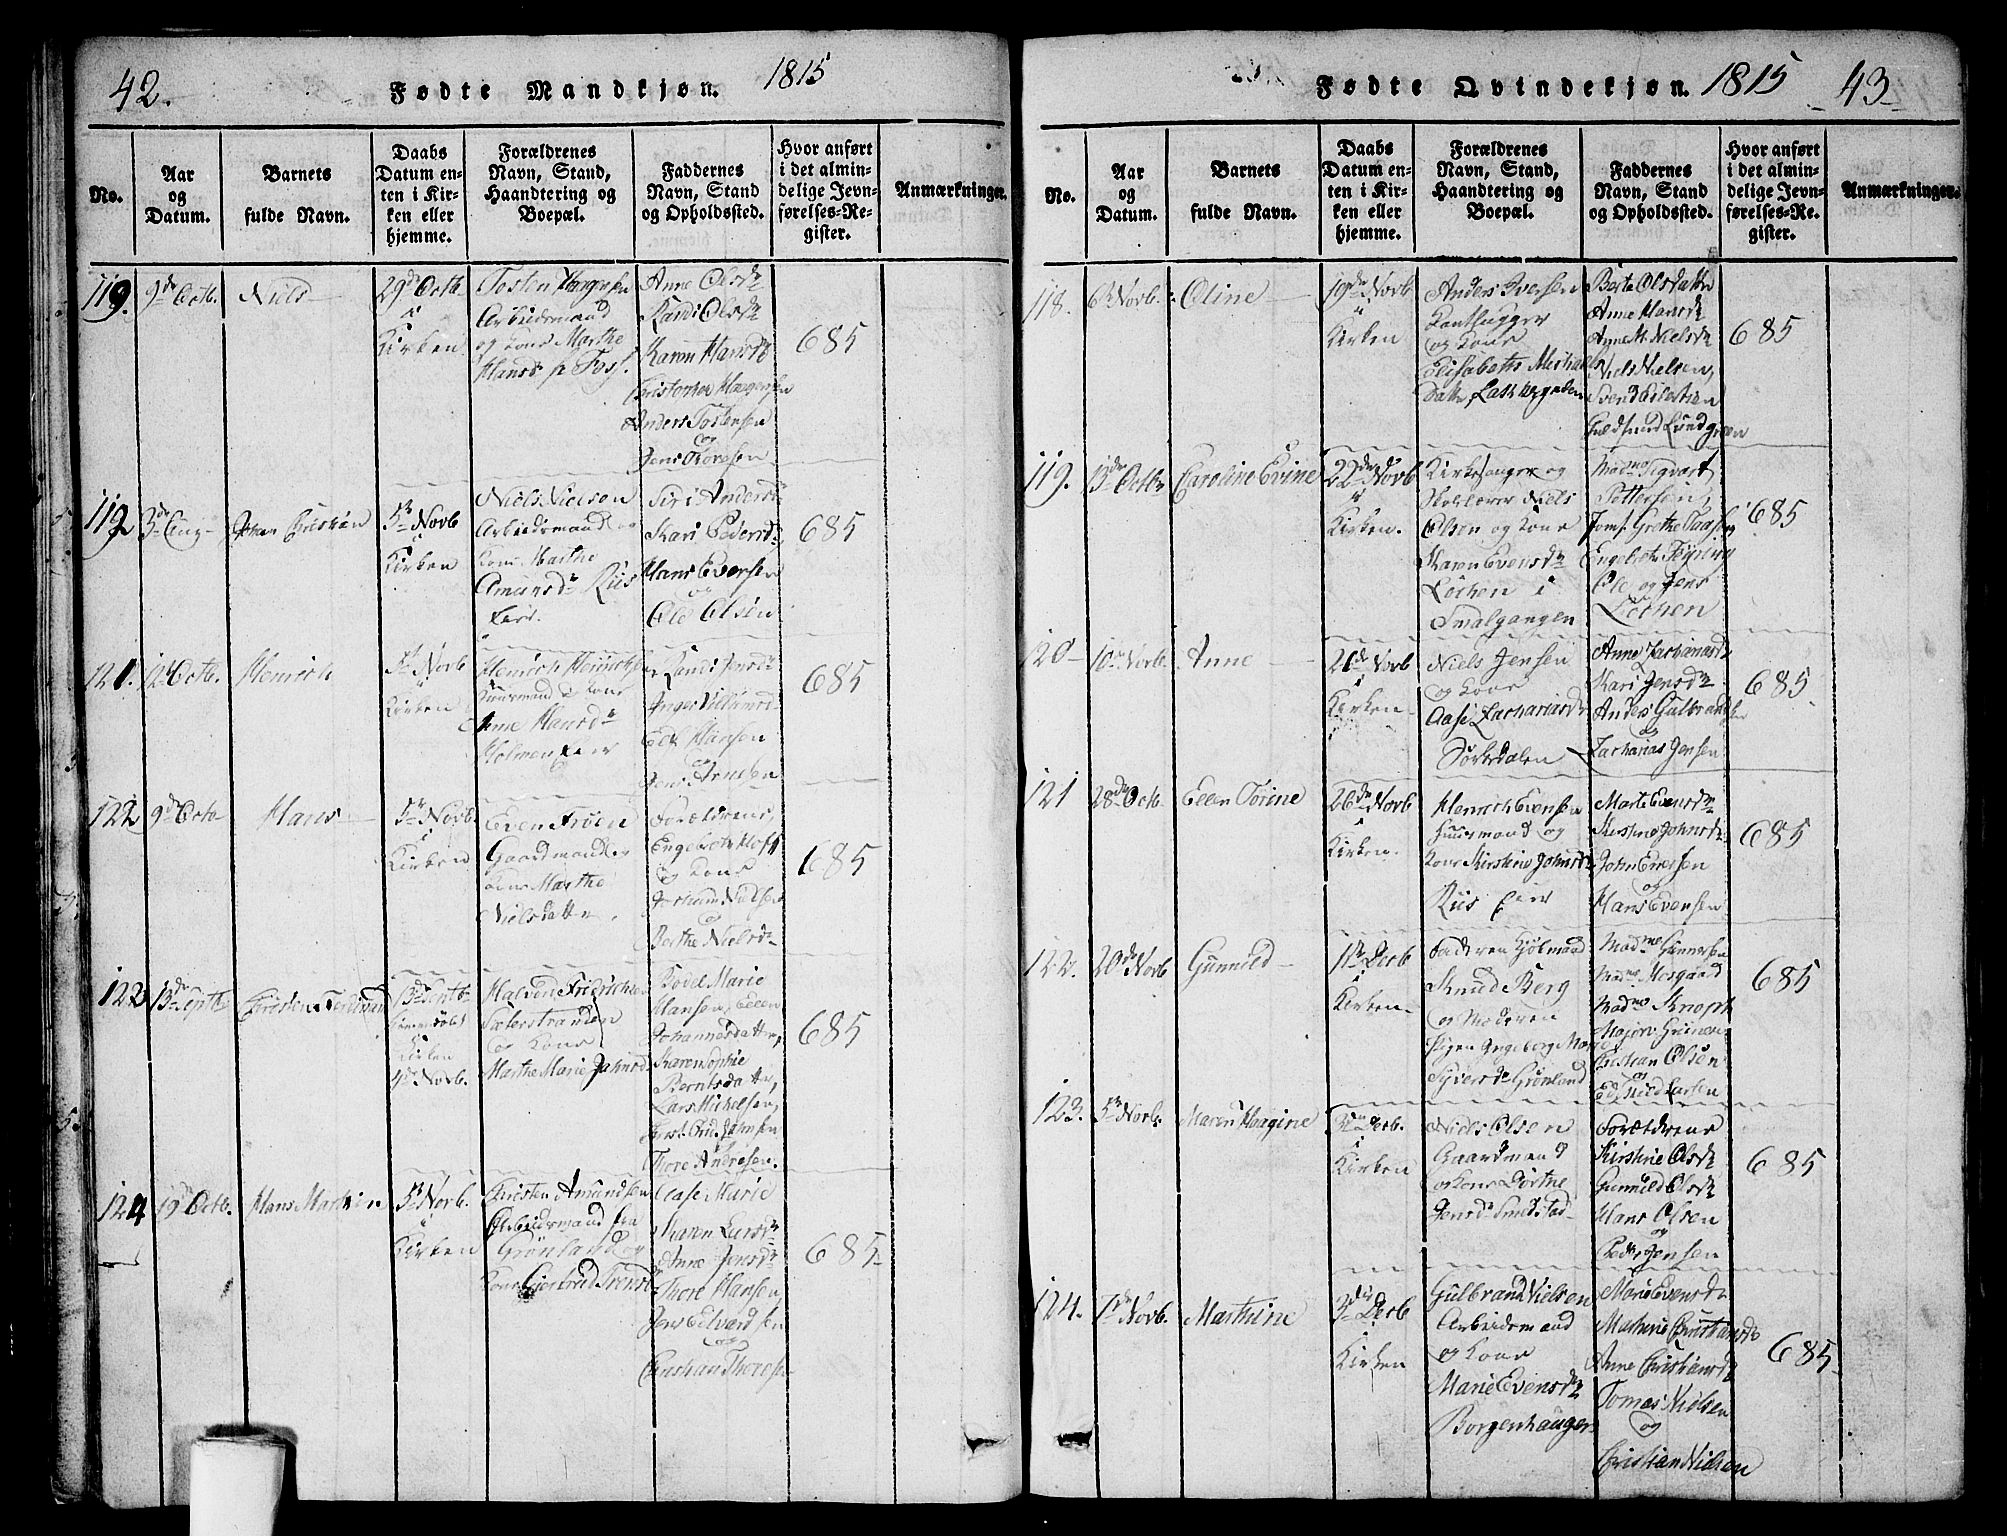 42.
Fødte Mandkjøn.
1815
No.
Aar
og
Datum.
Barnets
fulde Navn.
Daabs
Datum en-
ten i Kir-
ken eller
hjemme.
Forældrenes
Navn, Stand,
Haandtering og
Boepæl.
Faddernes
Navn, Stand
og Opholdssted.
Hvor anført
i det almin-
delige Jevn-
førelses-Re-
gister.
Anmærkninger.
119.
9de Octb.
Niels
29de Octb
i
Kirken
Arbeidsmand
og Kone Marthe
Hansd
Anne Olsdr
Randi Olsdr
Karen Hansdr
Christopher Haagensen
Anders Tostensen
og
Jens Thoresen
685
119
3de Aug
Johan Christian
5te Novb
i
Kirken
Niels Nielsen
Arbeidsmand og
Kone Marthe
Amundsdr Riis
Eier.
Siri Andersdr
Kari Pedersdr
Hans Evensen
og
Ole Olsen
685
121.
12te Octb.
Henrich
5te Novb
i
Kirken
Henrich Henrichsen
Huusmand & Kone
Anne Hansdr
Holmen Eier
Randi Jensdr
Inger Villumsdr
Hansen
og
Jens Arnesen
685
122
9de Octb
Hans
5te Novb
i
Kirken
Even Frøen
Gaardmand og
Kone Marthe
Nielsdatter
Forældrene,
Engebreth Hoff
og Kone
Nielsen
og
Berthe Nielsdr
685
122
13de Septbr
Christen Ferdinand
13de Septb
i
Kirken
4de Novb.
Halvor Fridrichsen
Sæterstranden
og Kone
Marthe Marie Jahnsd
Bodel Marie
Hansen, Ellen
Johannesdatter,
Karen Sophie
Berntsdatter,
Lars Michelsen,
Thore Andresen.
685
124
19de Octb.
Hans Martin
5te Novb.
i
Kirken
Christen Amundsen
Arbeidsmand fra
Grønland og
Kone
Aase Marie
Maren Larsdr
Anne Jensdr
Thore Hansen,
Jens Edvardsen
og
Christian Thoresen
685
Fødte Qvindekjøn.
1815
43
No.
Aar
og
Datum.
Barnets
fulde Navn.
Daabs
Datum en-
ten i Kir-
ken eller
hjemme.
Forældrenes
Navn, Stand,
Haandtering og
Boepæl.
Faddernes
Navn, Stand
og Opholdssted.
Hvor anført
i det almin-
delige Jevn-
førelses-Re-
gister.
Anmærkninger.
118.
6te Novb.
Oline
19de Novb
i
Kirken
Anders Iversen
og Kone
Elisabeth Michels
Datter
Berte Olsdatter
Anne Hansdr
Anne M. Nielsdr
Niels Nielsen,
Lundgreen
685
119.
13de Octbr
Caroline Evine
22de Novb
i
Kirken.
Kirkesanger og
Skolelærer Niels
Olsen og Kone
Karen Evensdr
Løchen i
Smalgangen
Madme Sigvart
Pettersen,
Jomf. Grethe Paasche
Engebreth
Ole og Jens
Løchen
685
120
10de Novb.
Anne
26de Novb
i
Kirken
Niels Jensen
og Kone
Aase Zachariasdr
Sørkedalen
Anne Zachariasdr
Kari Jensdr
Anders Gulbrandsen
og
Zacharias Jensen
685
121
28de Octb.
Ellen Torine
26de Novb
i
Kirken.
Henrich Evensen
Huusmand og
Kone Kirstine Johnsdr
Riis Eier
Marte Evensdr
Kirstine Johnsdr
John Evensen
og
Hans Evensen
685
122.
20de Novb
Gunnild
1te Decb
i
Kirken
Faderen
Knud Berg
og Moderen
Pigen Ingeborg Marie
Syversdr Grønland
Madme Gunnersen
Madme Mosgaard
Madme Knoph
Major
Christian Olsen
og
Larsen
685
123.
5te Novb.
Maren Haagine
3de Decb.
i
Kirken
Niels Olsen
Gaardmand
og Kone Dorthe
Jensdr Smedstad
Forældrene
Kirstine Olsdr
Gunnild Olsdr
Hans Olsen
og
Peder Jensen
685
124.
7de Novb.
Marthine
3de Decb
i
Kirken
Gulbrand Nielsen
Arbeidsmand
og Kone
Marie Evensdr
Borgenhaugen
Marie Evensdr
Mathie Christiansdr
Anne Christiansdr
Tomas Nielsen
og
Christian Nielsen
685